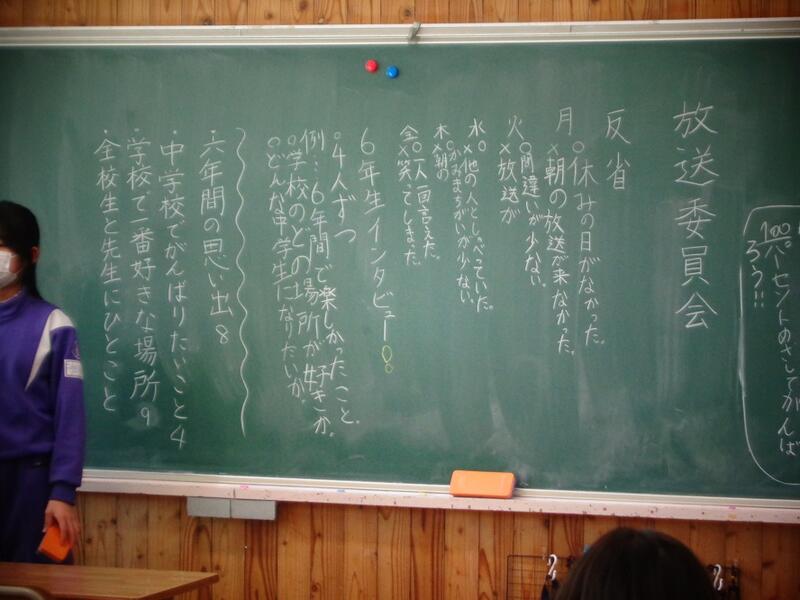 100パーセントのさしてがんば
ろう!!
放送委員会
反省
月○休みの日がなかった。
×朝の放送が来なかった。
火○間違いが少ない。
×放送が
水○
×他の人としゃべっていた。
木○かみまちがいが少ない。
×朝の
金○一人一回言えた。
×笑ってしまった。
6年生インタビュー!
○4人ずつ
例…6年間で楽しかったこと。
○学校のどの場所が好きか。
○どんな中学生になりたいか。
・六年間の思い出 8
・中学校でがんばりたいこと 4
・学校で一番好きな場所 9
・全校生と先生にひとこと